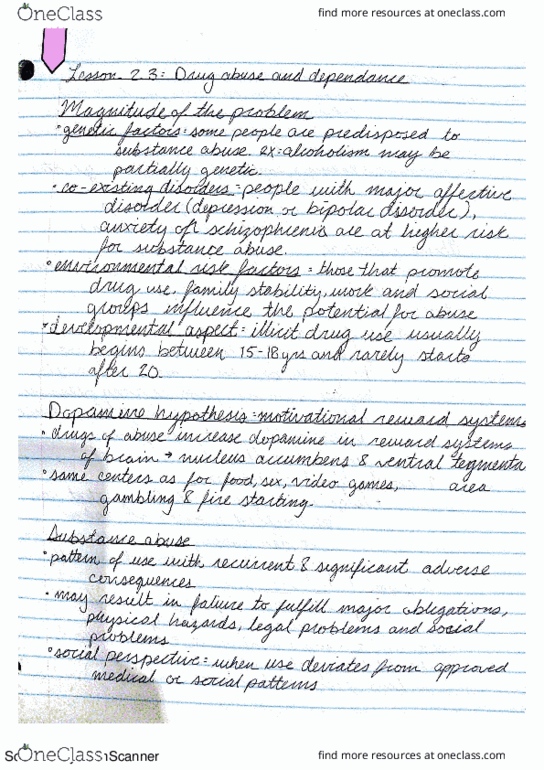 OneClass
find more resources at oneclass.com
Lesson 2.3: Drug abuse and dependance
Magnitude of the problem
• genetic factors: some people are predisposed to
substance abuse. ex: alcoholism may be
partially genetic.
• co-existing disorders = people with major affective
disorder (depression or bipolar disorder),
anxiety or schizophrenia are at higher risk
for substance abuse.
• environmental risk factors = those that promote
drug use. family stability, work and social
groups influence the potential for abuse
• developmental aspect = illicit drug use usually
begins between 15-18 yrs and rarely starts
after 20.
Dopamine hypothesis = motivational reward systems
• drugs of abuse increase dopamine in reward systems
of brain → nucleus accumbens & ventral tegmental
• same centers as for food, sex, video games, area
gambling & fire starting.
Substance abuse
• pattern of use with recurrent & significant adverse
consequences
• may result in failure to fulfill major obligations,
physical hazards, legal problems and social
problems
• social perspective = when use deviates from approved
medical or social patterns
OneClass Scanner
find more resources at oneclass.com